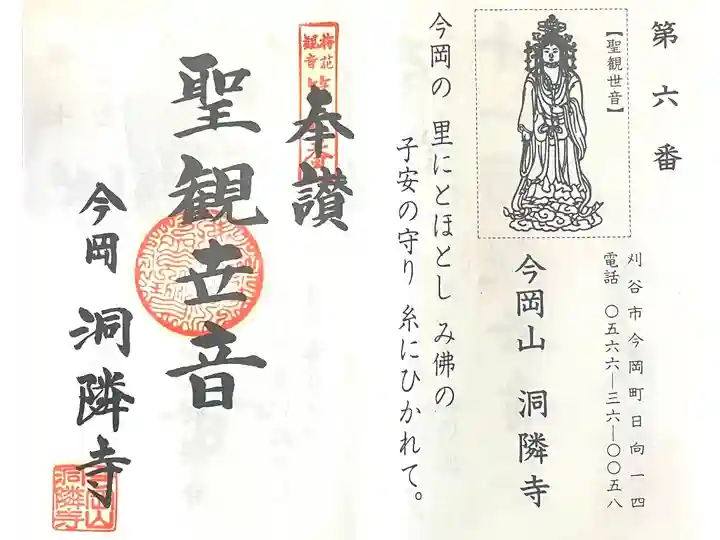 第六番
【聖観世音】
今岡山 洞隣寺
刈谷市今岡町日向一四
電話 〇五六六―三六―〇〇五八
今岡の 里にとほとし み佛の
子安の守り 糸にひかれて。
梅花
観音
奉讃
聖観世音
今岡 洞隣寺
今岡山
洞隣寺